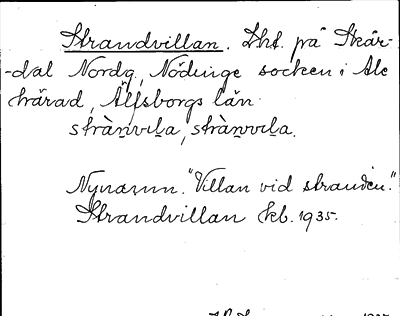 Strandvillan. Lht. på Skår-
-dal Nordg, Nödinge socken i Ale
härad, Älfsborgs län.
strànvıla, strànvvıla.
Nynamn. "Villan vid stranden."
Strandvillan kb. 1935.